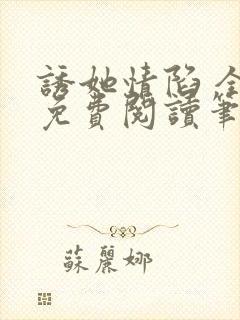 誘她情陷全
免費閱讀筆
蘇麗娜